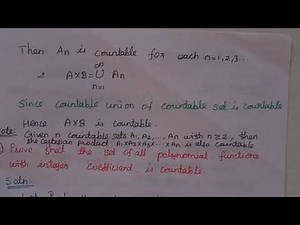 Then An is countable for each n=1,2,3...
∞
& A×B = ∪ An
n=1
Since countable union of countable set is countable
Hence A×B is countable.
Note: Given n countable sets A1, A2, ... An with n≥2, then
the cartesian product A1×A2×A3×...×An is also countable
) Prove that the set of all polynomial functions
with integer coefficient is countable.
Soln